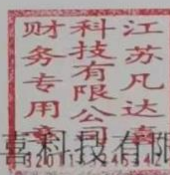 江苏凡达喜
科技有限公司
财务专用章
喜科技有限